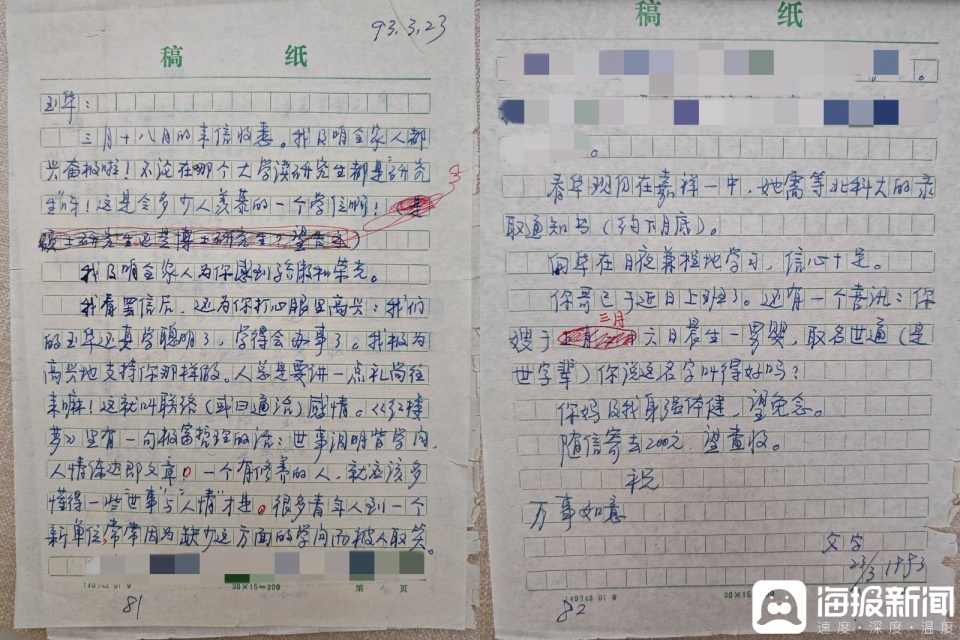 93.3.23
稿 纸
玉华：
三月十八月的来信收悉。我及咱全家人都
兴奋极啦！不论在哪个大学读研究生都是研究
生呀！这是令多少人羡慕的一个学位啊！
我及咱全家人为你感到骄傲和荣光。
我看罢信后，还为你打心眼里高兴：我们
的玉华还真学聪明了，学得会办事了。我极为
高兴地支持你那样做。人总是要讲一点礼尚往
来嘛！这就叫联络（或曰通洽）感情。《红楼
梦》里有一句极富哲理的话：世事洞明皆学问，
人情练达即文章。一个有修养的人，就应该多
懂得一些"世事"与"人情"才是。很多青年人到一个
新单位，常常因为缺少这方面的学问而被人取笑。
20×15=300
第 页
81
稿 纸
春华现仍在嘉祥一中，她需等北科大的录
取通知书（约下月底）。
向华在日夜兼程地学习，信心十足。
你哥已于近日上班了。还有一个喜讯：你
嫂于三月六日晨生一男婴，取名世通（是
世字辈）你说这名字叫得好吗？
你妈及我身强体健，望免念。
随信寄去200元，望查收。
祝
万事如意
文字
23/3 1993
20×15=
82
海报新闻
速度·深度·温度